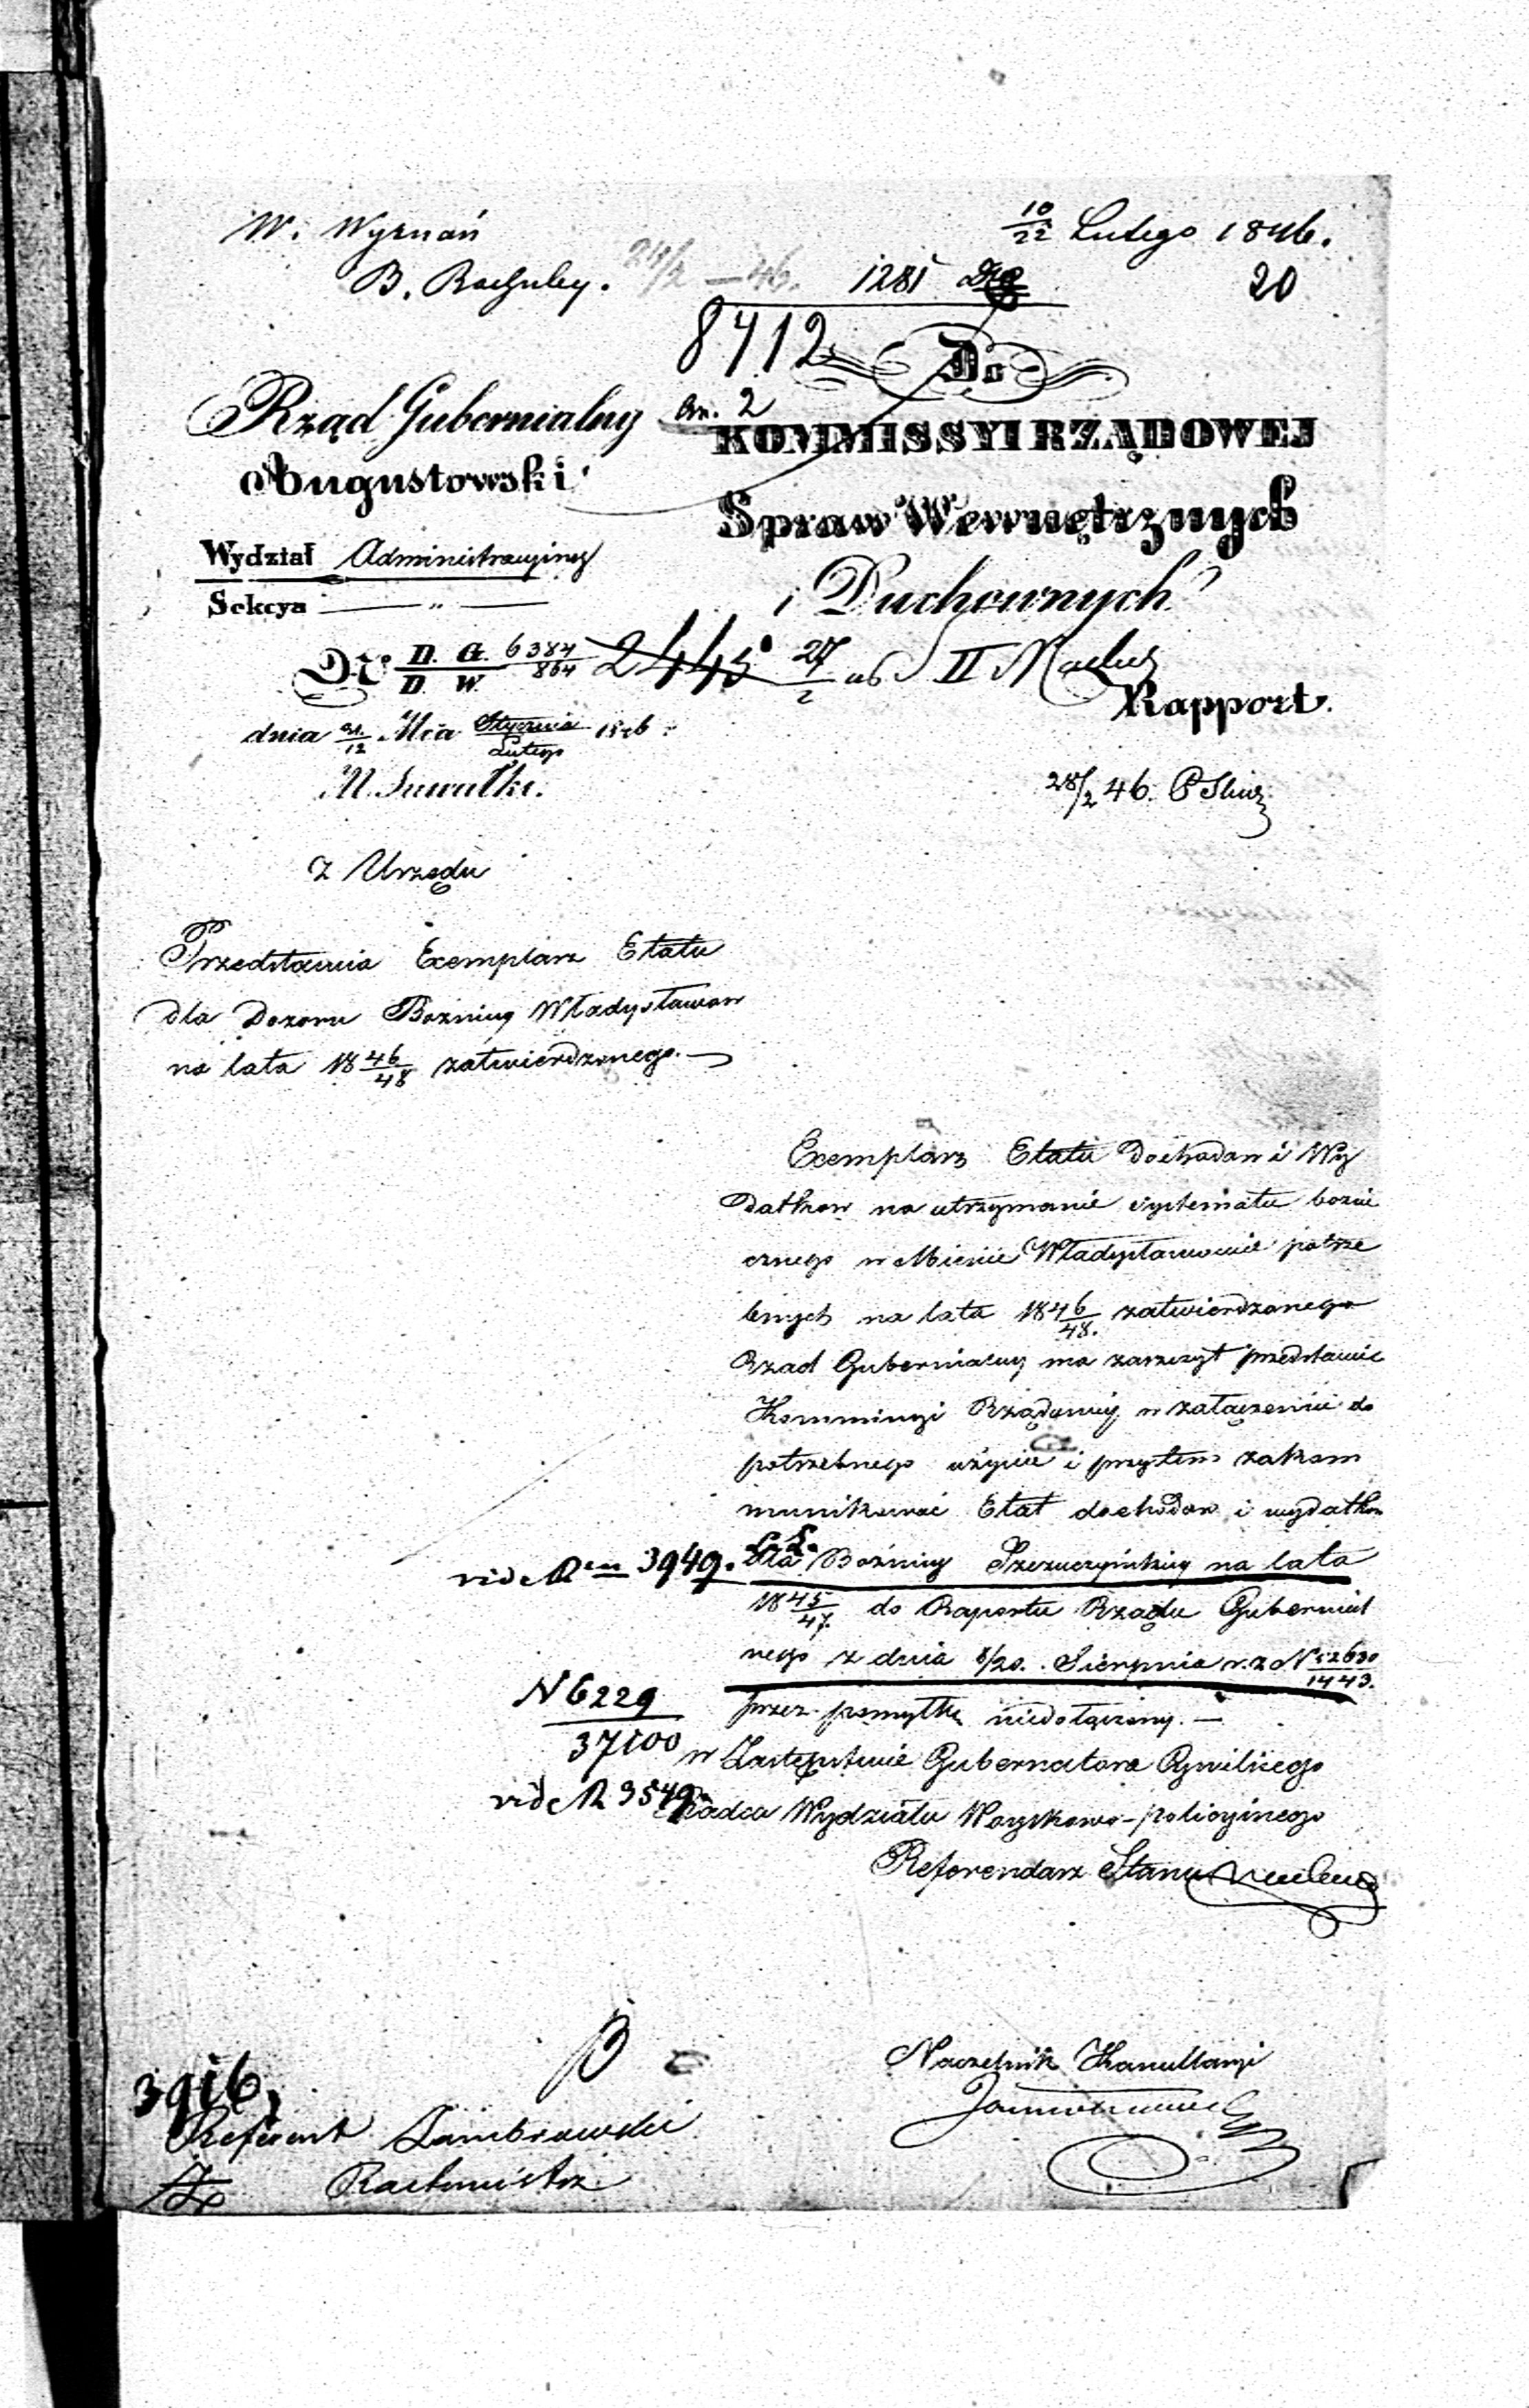 W. Wyznań
10/22 Lutego 1846.
B. Rachuby. 24/2 — 46. 1281 20
8712
Do
Rząd Gubernialny an. 2
KOMMISSYI RZĄDOWEJ
Augustowski
Spraw Wewnętrznych
Wydział Administracyiny
i Duchownych
Sekcya — " —
No D. G. 6384 / D. W. 864 2445 27/2 II
Rapport.
dnia 31/12 Mca Stycznia/Lutego 1846
M. Suwałki.
28/2 46.
Z Urzędu
Przedstawia Exemplarz Etatu
dla Dozoru Bożnicy Władysławow
na lata 1846/48 zatwierdzonego. —
Exemplarz Etatu Dochodow i Wy
datkow na utrzymanie systematu boźni
cznego w Mieście Władysławowie potrze
bnych na lata 1846/48. zatwierdzonego
Rząd Gubernialny ma zaszczyt przedstawić
Kommissyi Rządowéy w załączeniu do
potrzebnego użycia i przytem zakom
munikować Etat dochodow i wydatkow
vide No 3949. dla Bożnicy Szczuczyńskiey na lata
1845/47. do Raportu Rządu Gubernial
nego z dnia 8/20. Sierpnia r. z. N 52630/1443.
N 6229 / 37100
przez pomyłkę niedołączony. —
w Zastępstwie Gubernatora Cywilnego
vide N 3549. Radca Wydziału Woyskowo-policyinego
Referendarz Stanu
Naczelnik Kancellaryi
3916,
Referent Zambrowski
Rachmistrz